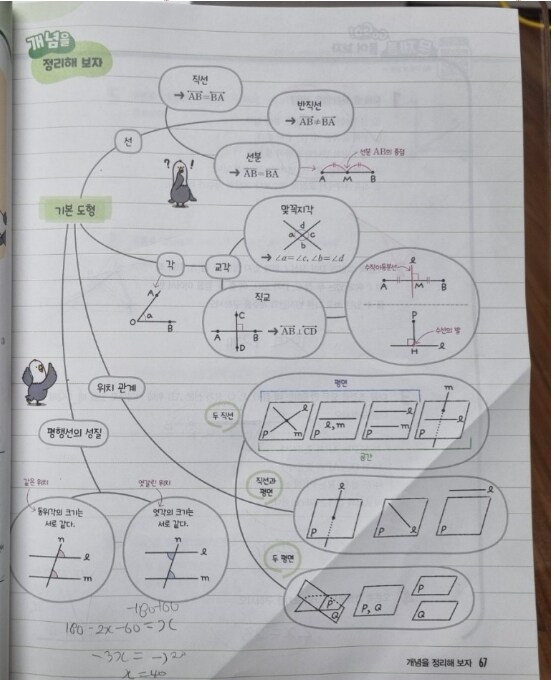 개념을
정리해 보자
직선
→ AB=BA
반직선
→ AB≠BA
선
선분
→ AB=BA
선분 AB의 중점
A M B
기본 도형
? !
맞꼭지각
d
a c
b
→ ∠a=∠c, ∠b=∠d
각
교각
A
a
O B
직교
C
A B
D
→ AB⊥CD
수직이등분선
l
A M B
P
수선의 발
H l
위치 관계
평행선의 성질
두 직선
평면
P m l
P l, m
P l m
m l P
공간
직선과
평면
l P
P l
l P
두 평면
P Q
P, Q
P
Q
같은 위치
동위각의 크기는
서로 같다.
n
l
m
엇갈린 위치
엇각의 크기는
서로 같다.
n
l
m
180-2x-60=x
x=40
개념을 정리해 보자 67